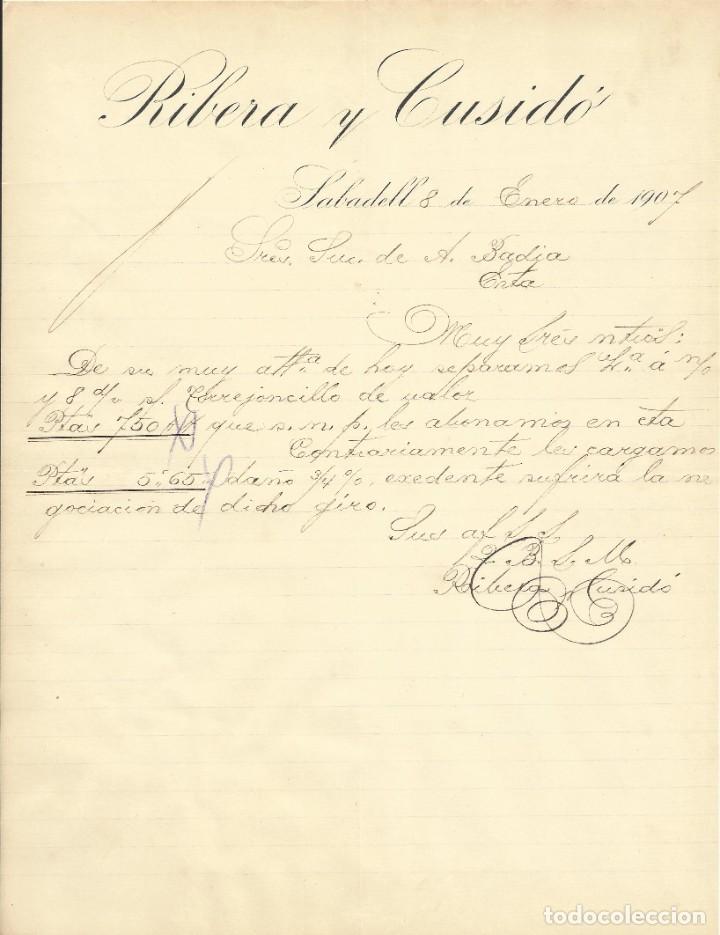 Ribera y Cusidó
Sabadell 8 de Enero de 1907
Sres. Suc. de A. Badia
Cnta
Muy Srés ntros:
De su muy att.ª de hoy separamos L.ª á n/o
y 8 d/v s/. Torrejoncillo de valor
Ptas 750 que s. n. p. les abonamos en cta
Contrariamente les cargamos
Ptas 5"65 daño 3/4 %. exedente sufrirá la ne
gociación de dicho giro.
Sus af. S. S.
Q. B. S. M.
Ribera y Cusidó
todocoleccion
todocoleccion.net